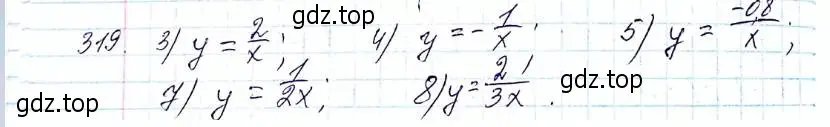 319. 3) y = 2/x; 4) y = -1/x; 5) y = -0,8/x;
7) y = 1/2x; 8) y = 2/3x.
gdz.top gdz.top gdz.top
gdz.top gdz.top